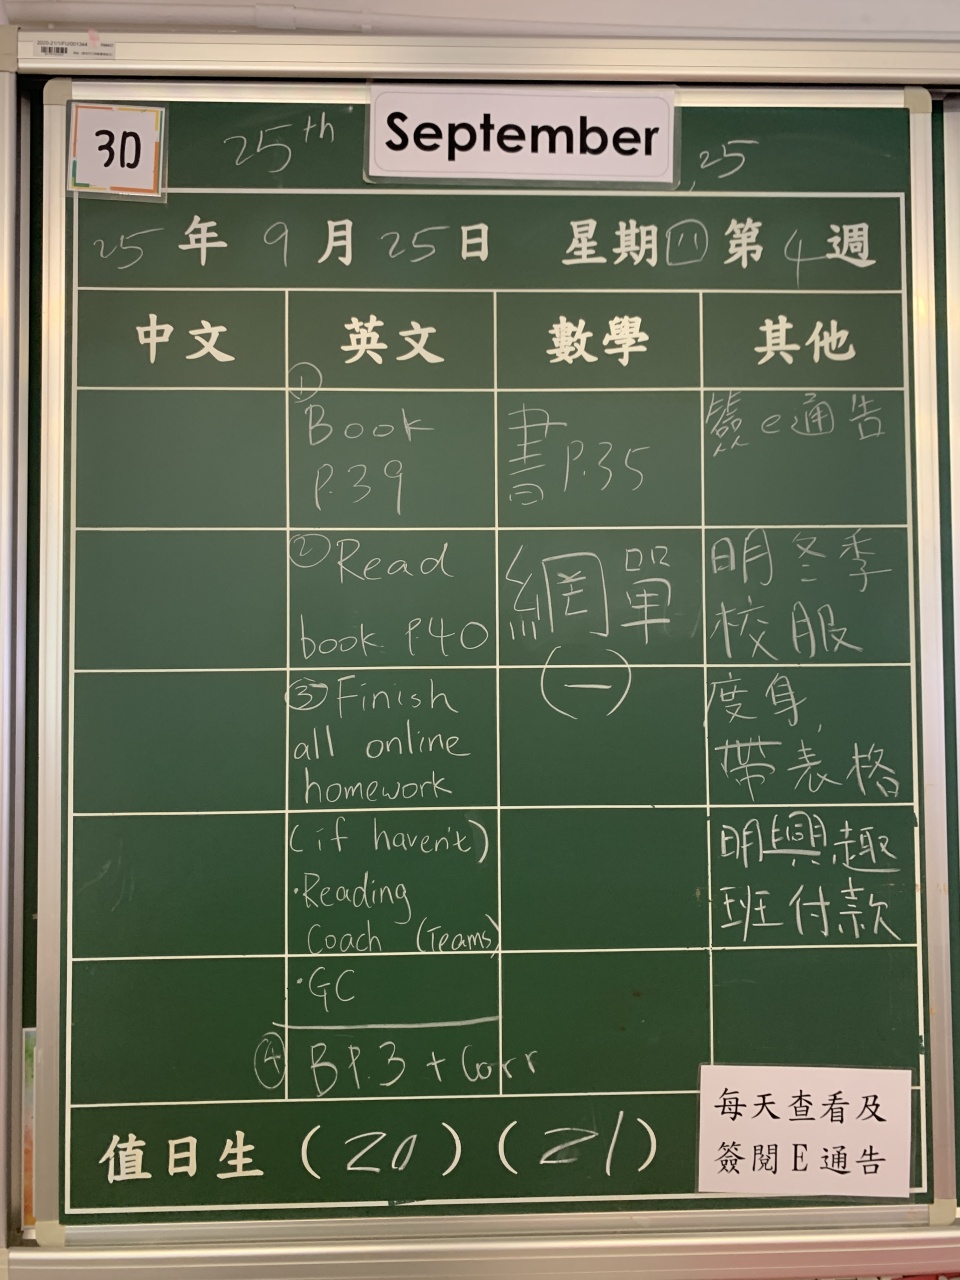 3D
25th September ,25
25年9月25日 星期四 第4週
中文 英文 數學 其他
①
Book
P.39
②Read
book P.40
③Finish
all online
homework
(if haven't)
·Reading
Coach (Teams)
·GC
④ B P.3 + Corr
書 P.35
網單
(一)
簽e通告
明冬季
校服
度身,
帶表格
明興趣
班付款
值日生(20)(21)
每天查看及
簽閱E通告